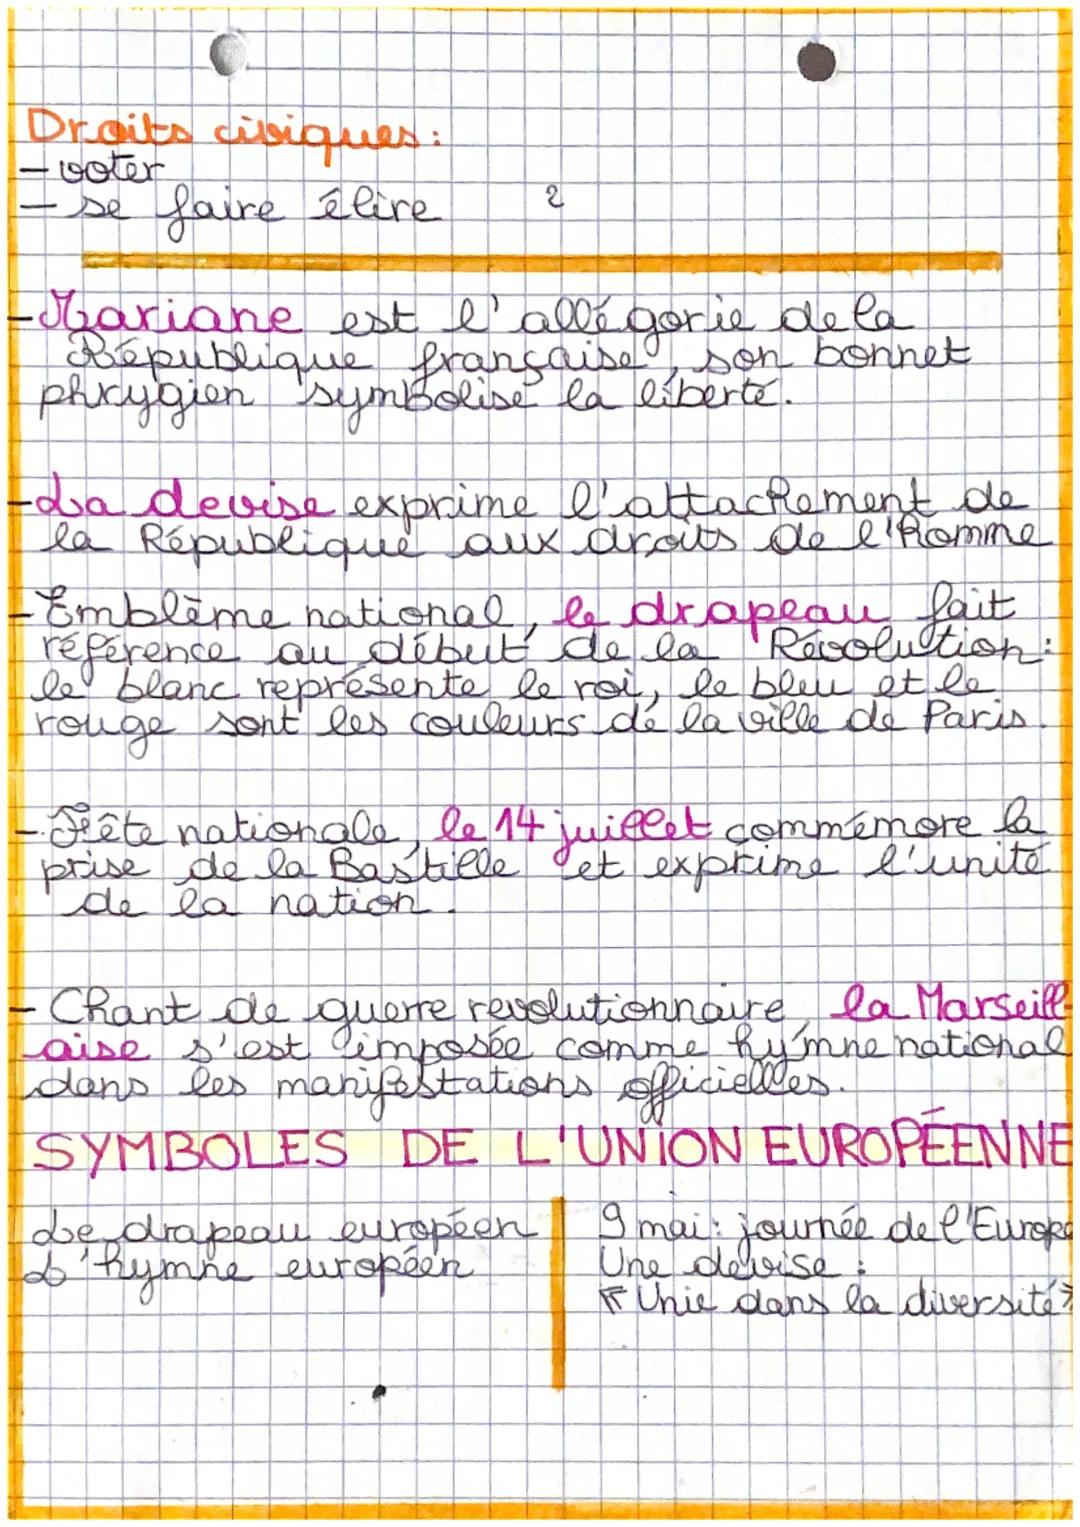 Droits civiques :
- voter
- se faire élire 2
- Mariane est l'allégorie de la
République française, son bonnet
phrygien symbolise la liberté.
- La devise exprime l'attachement de
la République aux droits de l'homme
- Emblème national, le drapeau fait
référence au début de la Révolution :
le blanc représente le roi, le bleu et le
rouge sont les couleurs de la ville de Paris.
- Fête nationale, le 14 juillet commémore la
prise de la Bastille et exprime l'unité
de la nation.
- Chant de guerre revolutionnaire, la Marseill-
aise s'est imposée comme hymne national
dans les manifestations officielles.
SYMBOLES DE L'UNION EUROPÉENNE
Le drapeau européen
L'hymne européen
9 mai : journée de l'Europe
Une devise :
« Unie dans la diversité »